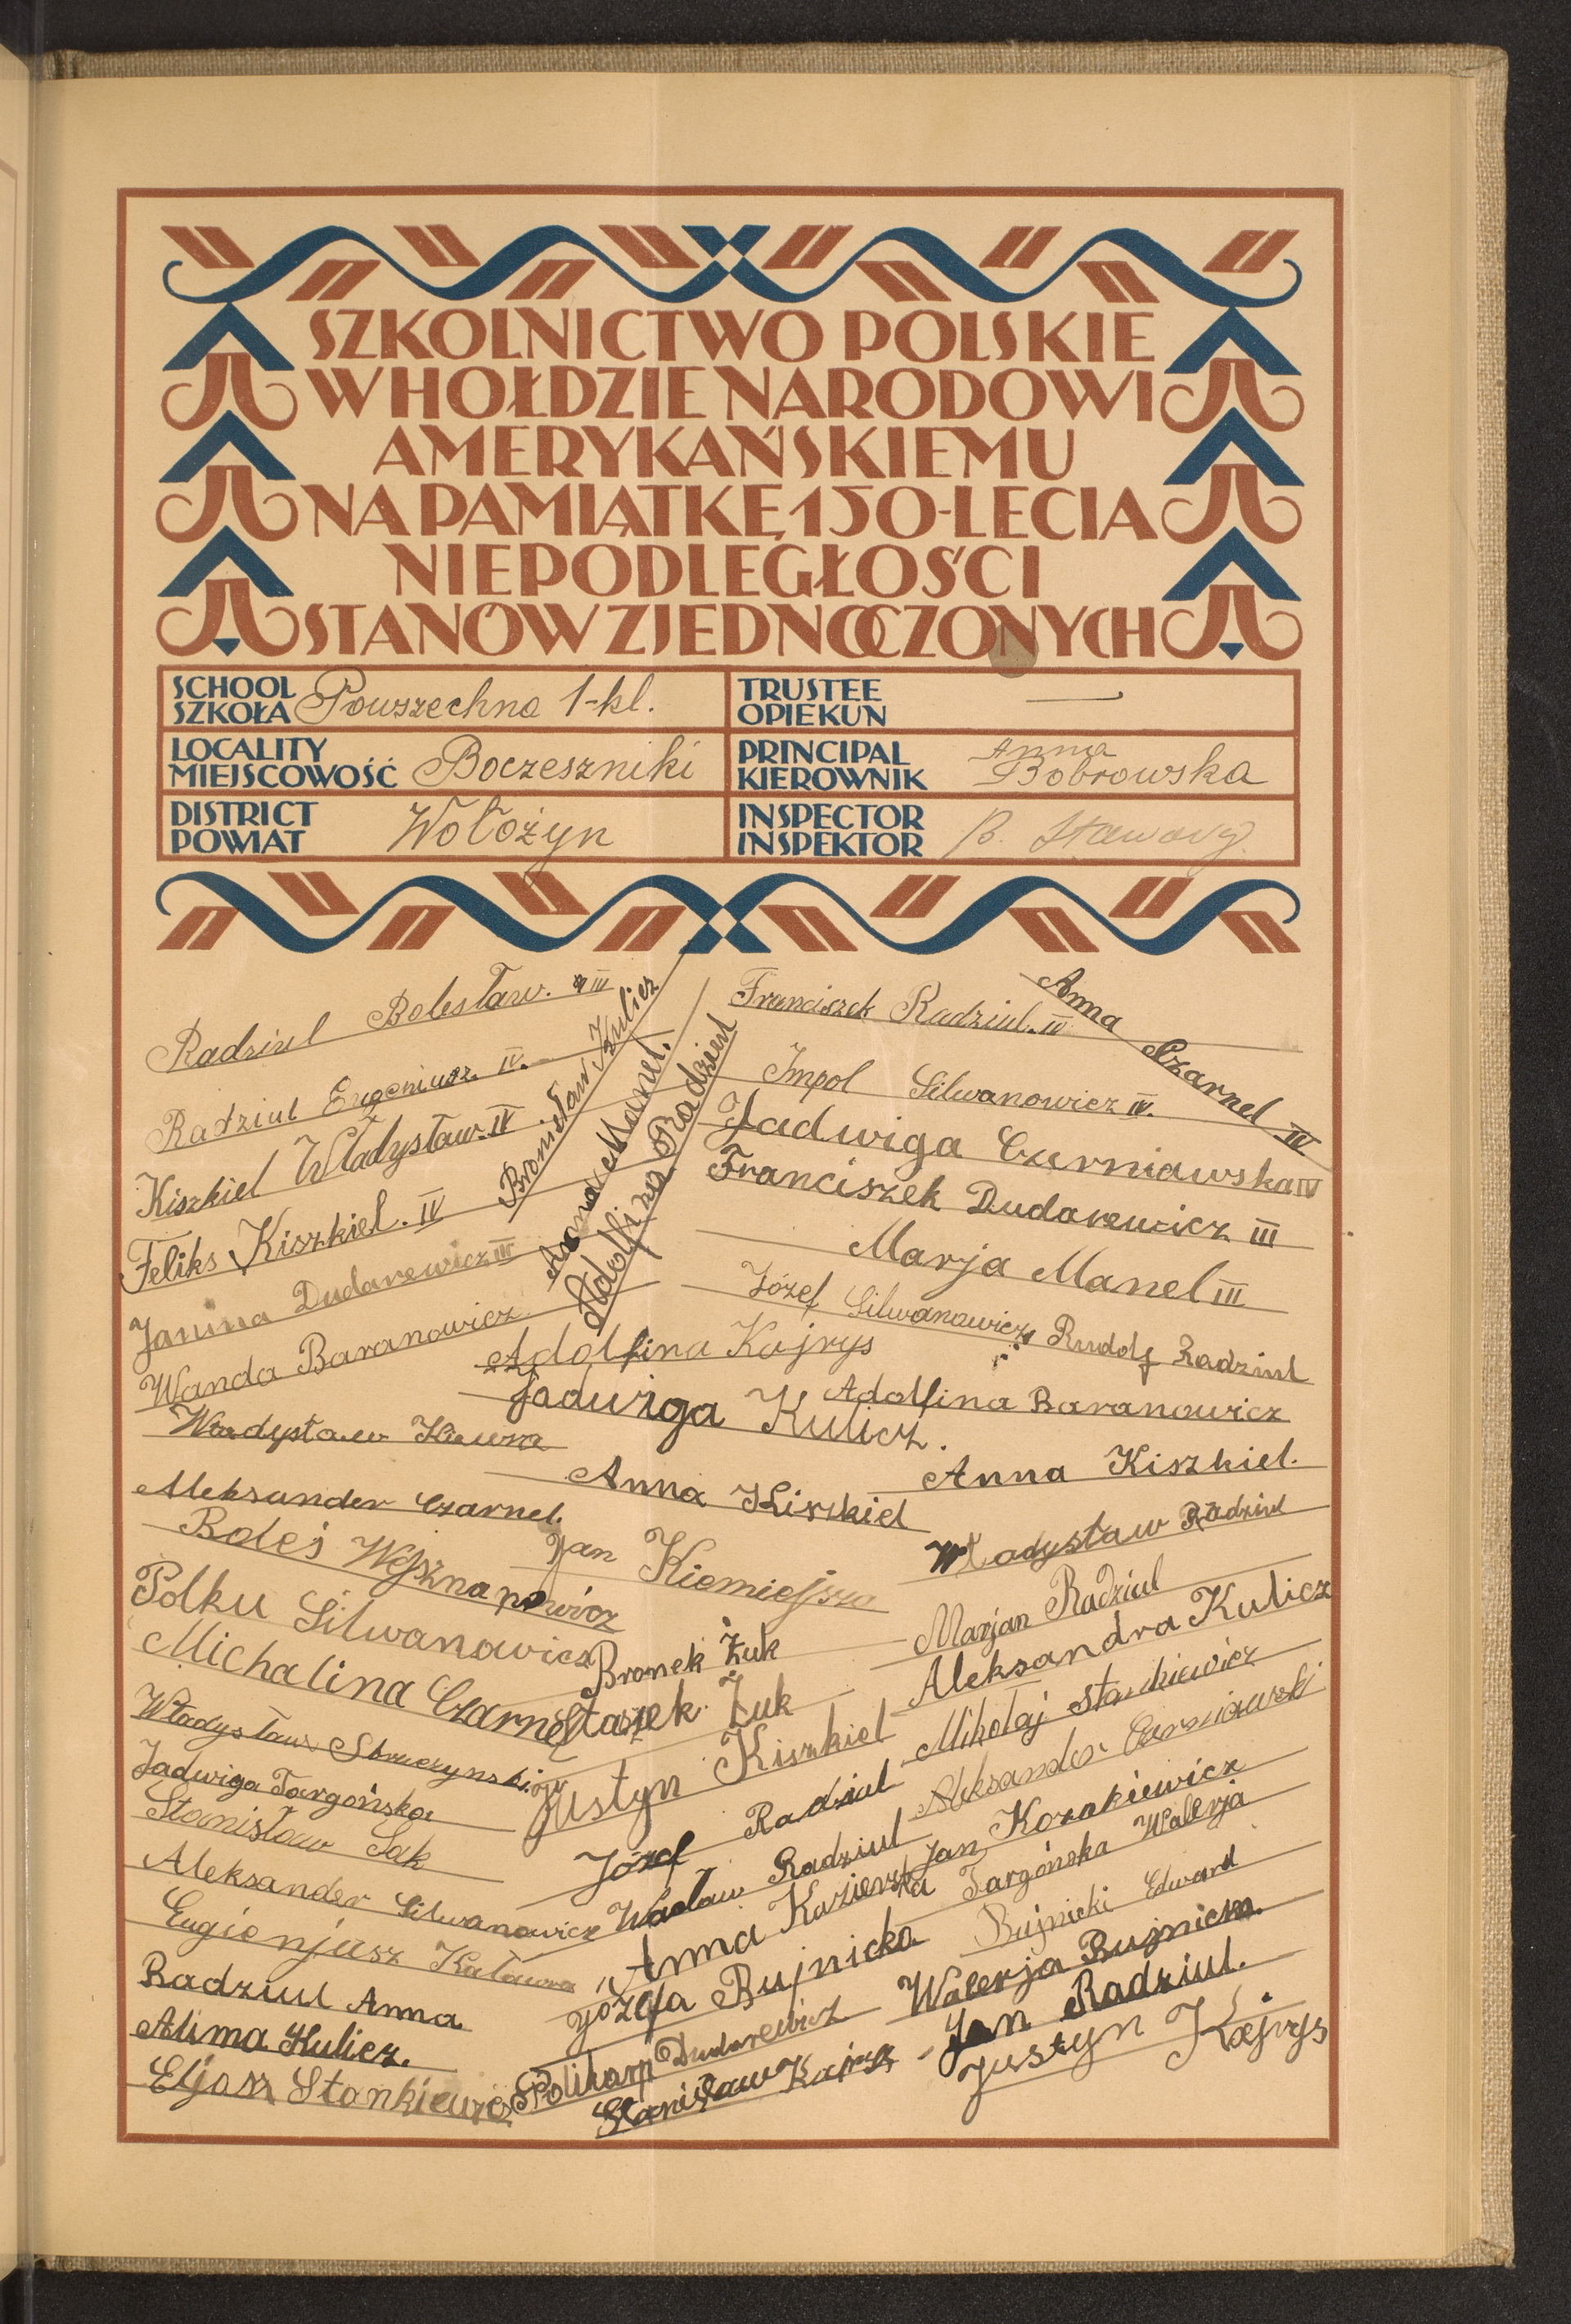 SZKOLNICTWO POLSKIE
W HOŁDZIE NARODOWI
AMERYKAŃSKIEMU
NA PAMIĄTKĘ 150-LECIA
NIEPODLEGŁOŚCI
STANÓW ZJEDNOCZONYCH
SCHOOL
SZKOŁA
Powszechna 1-kl.
TRUSTEE
OPIEKUN
—
LOCALITY
MIEJSCOWOŚĆ
Boczeszniki
PRINCIPAL
KIEROWNIK
Anna
Bobrowska
DISTRICT
POWIAT
Wołożyn
INSPECTOR
INSPEKTOR
B.
Radziul Bolesław. III
Radziul Eugeniusz. IV.
Kiszkiel Władysław. IV
Feliks Kiszkiel. IV
Janina Dudarewicz III
Wanda Baranowicz
Bronisław Kulicz
Anna Manel.
Adolfina Radziul
Franciszek Radziul. IV
Anna Czarnel IV
Impol Silwanowicz IV.
Jadwiga Czerniawska IV
Franciszek Dudarewicz III
Marja Manel III
Józef Silwanowicz
Rudolf Radziul
Adolfina Kajrys
Adolfina Baranowicz
Jadwiga Kulicz.
Władysław
Anna Kiszkiel
Anna Kiszkiel.
Aleksander Czarnel.
Władysław Radziul
Boleś
Jan Kiemiejsza
Polku Silwanowicz
Marjan Radziul
Bronek Żuk
Michalina Czarnel
Aleksandra Kulicz
Staszek Żuk
Władysław
Justyn Kiszkiel
Mikołaj Stankiewicz
Jadwiga Targońska
Józef Radziul
Aleksander Czerniawski
Stanisław Sak
Wacław Radziul
Jan Kozakiewicz
Aleksander Silwanowicz
Anna
Targońska Walerja
Eugienjusz Katawra
Józefa Bujnicka
Bujnicki Edward
Radziul Anna
Walerja Bujnicka.
Alima Kulicz.
Polikarp Dudarewicz
Jan Radziul.
Eljasz
Stanisław Kajrys
Justyn Kajrys